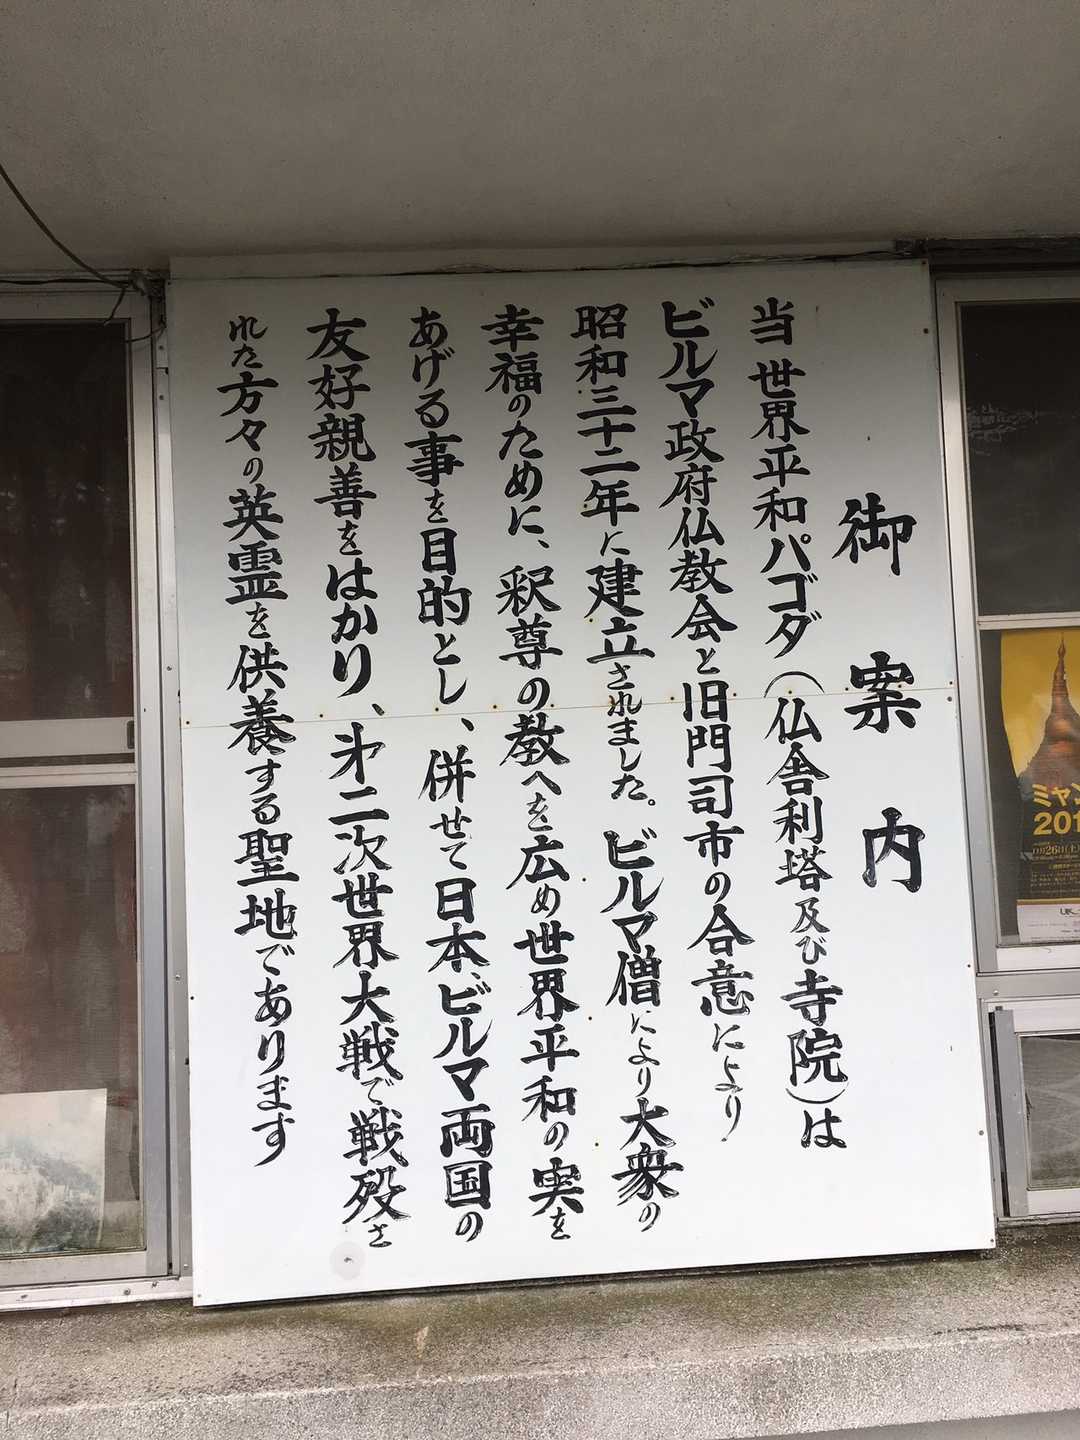 御案内
当世界平和パゴダ(仏舎利塔及び寺院)は
ビルマ政府仏教会と旧門司市の合意により
昭和三十二年に建立されました。ビルマ僧により大衆の
幸福のために、釈尊の教へを広め世界平和の実を
あげる事を目的とし、併せて日本、ビルマ両国の
友好親善をはかり、㐧二次世界大戦で戦殁さ
れた方々の英霊を供養する聖地であります
ミャン
201